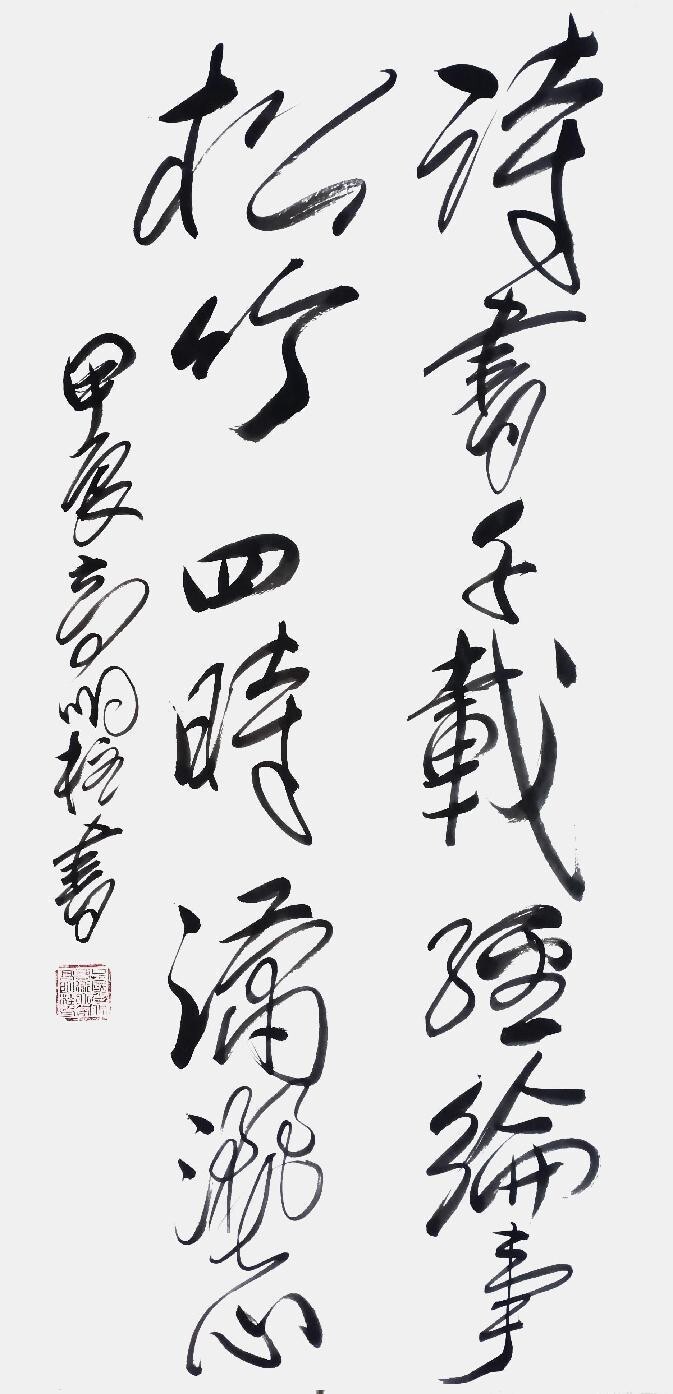 詩書千載經綸事
松竹四時瀟灑心
甲辰高明柱書